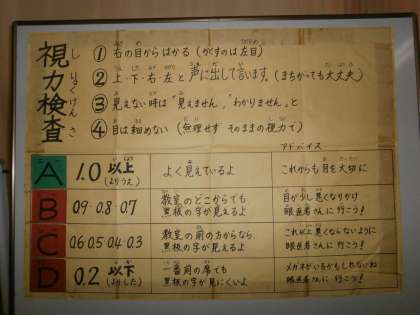 視力検査
① 右の目からはかる(かくすのは左目)
② 上・下・右・左と声に出して言います。(まちがっても大丈夫)
③ 見えない時は"見えません。""わかりません。"と
④ 目は細めない(無理せず そのままの視力で)
アドバイス
A 1.0 以上(よりうえ) よく見えているよ これからも目を大切に
B 0.9・0.8・0.7 教室のどこからでも黒板の字が見えるよ 目が少し悪くなりかけ眼医者さんに行こう!
C 0.6 0.5 0.4 0.3 教室の前の方からなら黒板の字が見えるよ これ以上悪くならないように眼医者さんに行こう!
D 0.2 以下(よりした) 一番前の席でも黒板の字が見にくいよ メガネがいるかもしれないね眼医者さんに行こう!